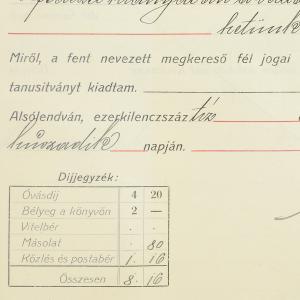 hetünk
Miről, a fent nevezett megkereső fél jogai
tanusitványt kiadtam.
Alsólendván, ezerkilenczszáz tiz
húszadik napján.
Díjjegyzék:
Óvásdíj 4 20
Bélyeg a könyvön 2 —
Vitelbér . .
Másolat . 80
Közlés és postabér 1. 16
Összesen 8. 16